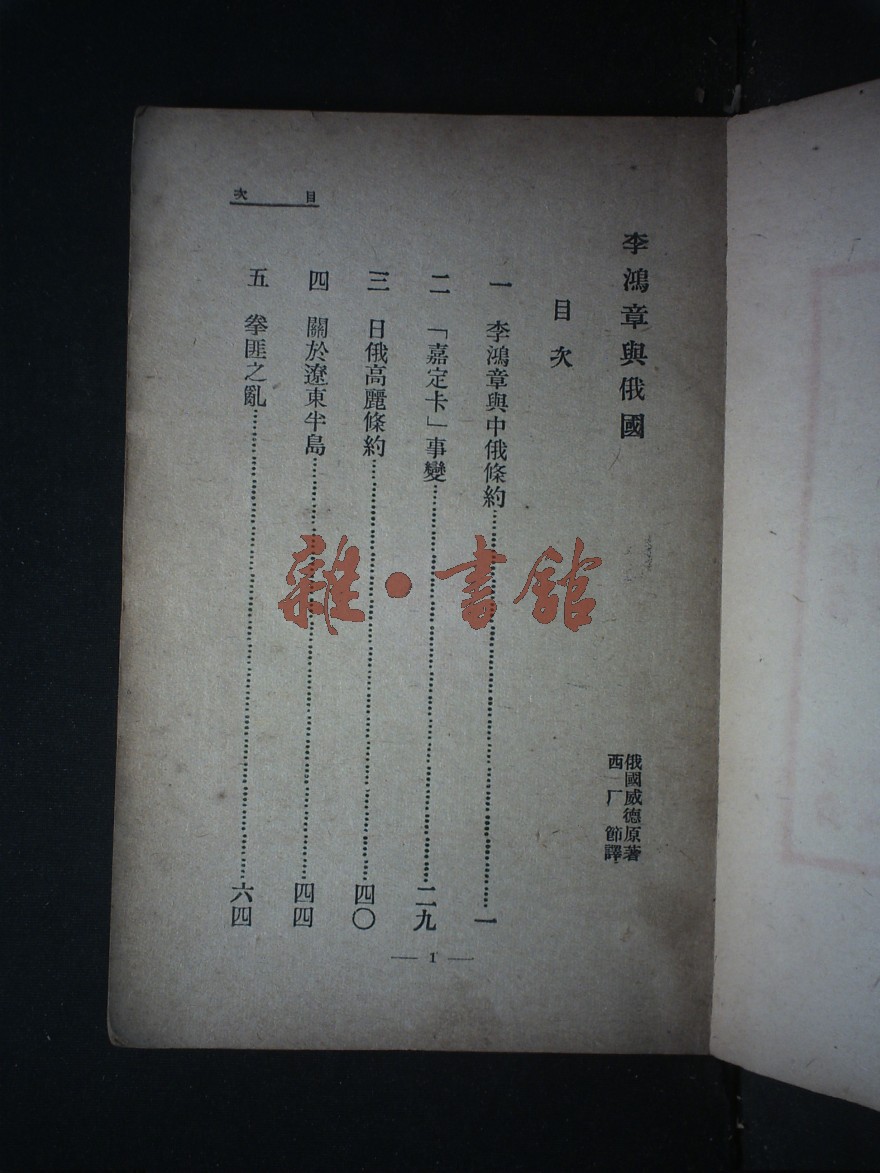 目次
李鴻章與俄國
俄國威德原著
西厂節譯
目次
一 李鴻章與中俄條約……一
二 「嘉定卡」事變……二九
三 日俄高麗條約……四〇
四 關於遼東半島……四四
五 拳匪之亂……六四
— 1 —
雜·書館